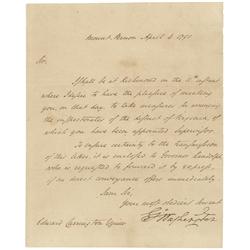 Mount Vernon April 4 1791
Sir,
I shall be at Richmond on the 11th instant
where I hope to have the pleasure of meeting
you, on that day, to take measures for arranging
the inspectorates of the district of Virginia, of
which you have been appointed Supervisor.
To ensure certainty to the transmission
of this letter, it is enclosed to Governor Randolph
who is requested to forward it by express, if
no direct conveyance offers immediately
I am Sir,
Your most obedient Servant
Go Washington
Edward Carrington Esquire